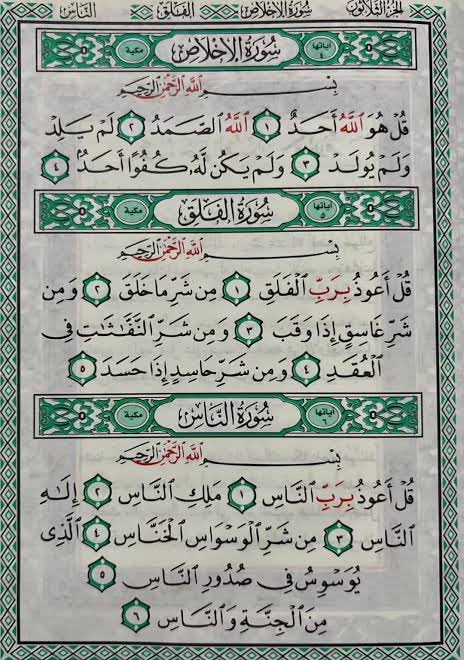 الجزء الثلاثون سورة الإخلاص الفلق الناس
آياتها ٤ سورة الإخلاص مكية
بِسْمِ ٱللَّهِ ٱلرَّحْمَٰنِ ٱلرَّحِيمِ
قُلْ هُوَ ٱللَّهُ أَحَدٌ ١ ٱللَّهُ ٱلصَّمَدُ ٢ لَمْ يَلِدْ
وَلَمْ يُولَدْ ٣ وَلَمْ يَكُن لَّهُۥ كُفُوًا أَحَدٌۢ ٤
آياتها ٥ سورة الفلق مكية
بِسْمِ ٱللَّهِ ٱلرَّحْمَٰنِ ٱلرَّحِيمِ
قُلْ أَعُوذُ بِرَبِّ ٱلْفَلَقِ ١ مِن شَرِّ مَا خَلَقَ ٢ وَمِن
شَرِّ غَاسِقٍ إِذَا وَقَبَ ٣ وَمِن شَرِّ ٱلنَّفَّٰثَٰتِ فِى
ٱلْعُقَدِ ٤ وَمِن شَرِّ حَاسِدٍ إِذَا حَسَدَ ٥
آياتها ٦ سورة الناس مكية
بِسْمِ ٱللَّهِ ٱلرَّحْمَٰنِ ٱلرَّحِيمِ
قُلْ أَعُوذُ بِرَبِّ ٱلنَّاسِ ١ مَلِكِ ٱلنَّاسِ ٢ إِلَٰهِ
ٱلنَّاسِ ٣ مِن شَرِّ ٱلْوَسْوَاسِ ٱلْخَنَّاسِ ٤ ٱلَّذِى
يُوَسْوِسُ فِى صُدُورِ ٱلنَّاسِ ٥
مِنَ ٱلْجِنَّةِ وَٱلنَّاسِ ٦